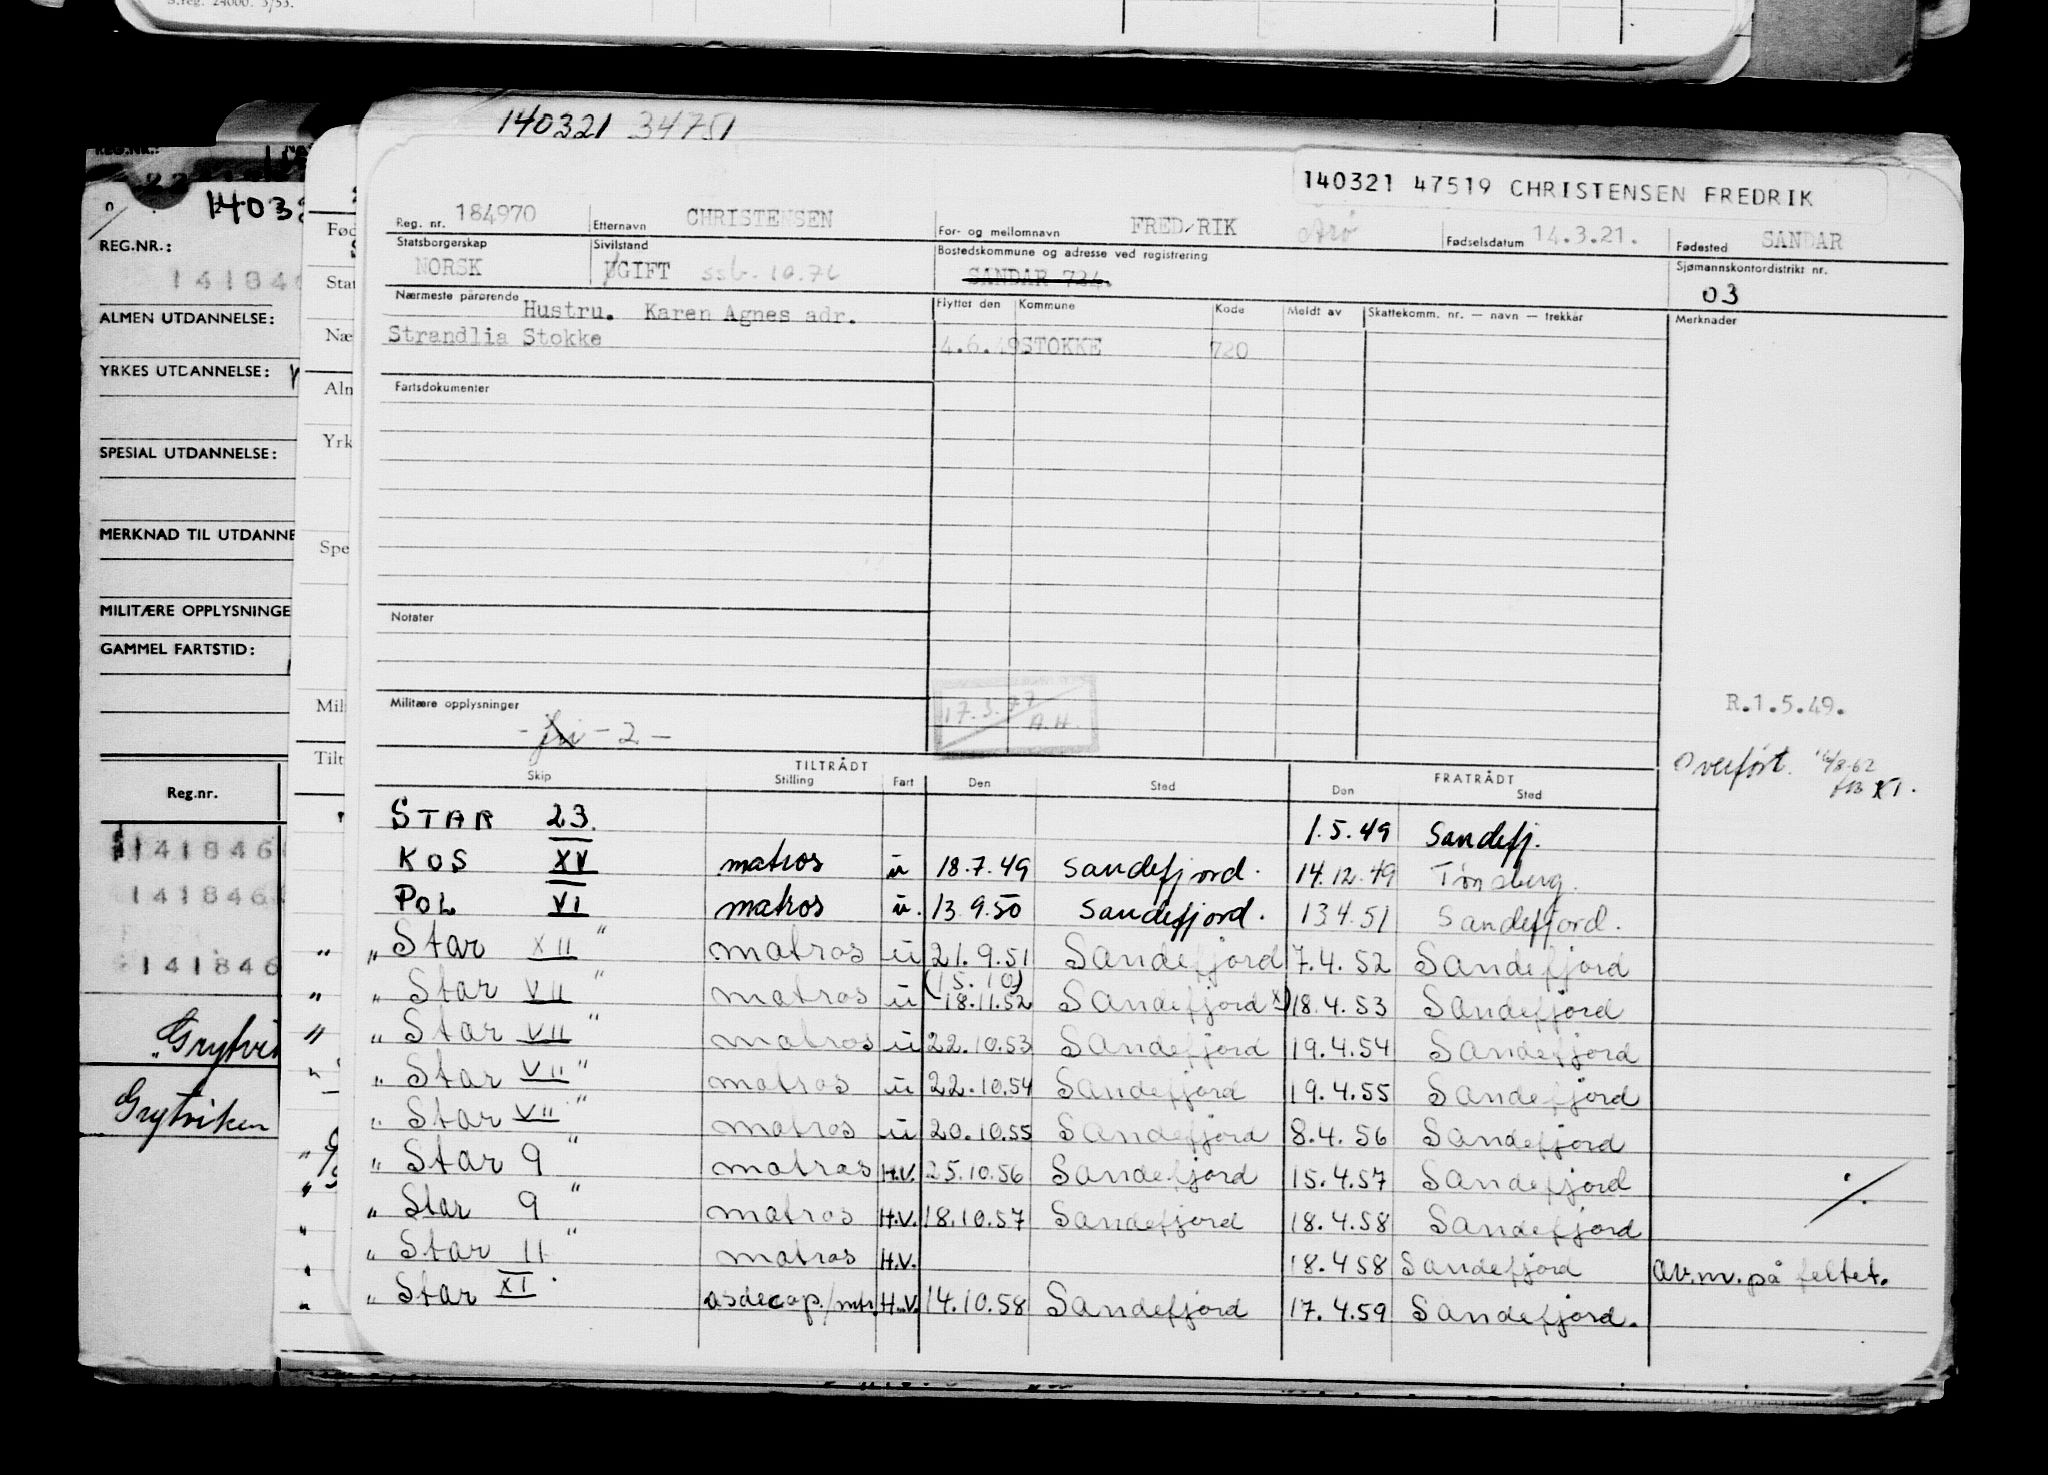 S.reg. 24000. 3/53.
140321 34751
140321 47519 CHRISTENSEN FREDRIK
Reg. nr. 184970 Etternavn CHRISTENSEN For- og mellomnavn FREDRIK Arø Fødselsdatum 14.3.21. Fødested SANDAR
Statsborgerskap NORSK Sivilstand UGIFT ssb. 10.71 Bostedskommune og adresse ved registrering SANDAR 724. Sjømannskontordistrikt nr. 03
Nærmeste pårørende Hustru. Karen Agnes adr. Flyttet den Kommune Kode Meldt av Skattekomm. nr. — navn — trekkår Merknader
Strandlia Stokke 4.6.49 STOKKE 720
Fartsdokumenter
Notater
Militære opplysninger
- fri - 2 -
17.3.77 A.H.
R.1.5.49.
Overført. 16/8-62
fB XI.
TILTRÅDT FRATRÅDT
Skip Stilling Fart Den Sted Den Sted
STAR 23. 1.5.49 Sandefj.
KOS XV matros u 18.7.49 Sandefjord. 14.12.49 Tønsberg.
POL VI matros u. 13.9.50 Sandefjord. 13.4.51 Sandefjord.
" Star XII " matros u 21.9.51 Sandefjord 7.4.52 Sandefjord
" Star VII " matros u (15.10) 18.11.52 Sandefjord x) 18.4.53 Sandefjord
" Star VII " matros u 22.10.53 Sandefjord 19.4.54 Sandefjord
" Star VII " matros u 22.10.54 Sandefjord 19.4.55 Sandefjord
" Star VII " matros u 20.10.55 Sandefjord 8.4.56 Sandefjord
" Star 9 " matros H.V. 25.10.56 Sandefjord 15.4.57 Sandefjord
" Star 9 " matros H.V. 18.10.57 Sandefjord 18.4.58 Sandefjord
" Star 11 " matros H.V. 18.4.58 Sandefjord av.m. på feltet.
" Star XI. asdecop./mtr. H.V. 14.10.58 Sandefjord 17.4.59 Sandefjord.
./.
REG.NR.:
14032
REG.NR.:
141846
ALMEN UTDANNELSE:
YRKES UTDANNELSE:
SPESIAL UTDANNELSE:
MERKNAD TIL UTDANNE
MILITÆRE OPPLYSNINGE
GAMMEL FARTSTID:
Reg.nr.
141846
141846
141846
"Grytvi
Grytviken
Fød
Stat
Næ
Aln
Yrk
Spe
Mil
Tilt